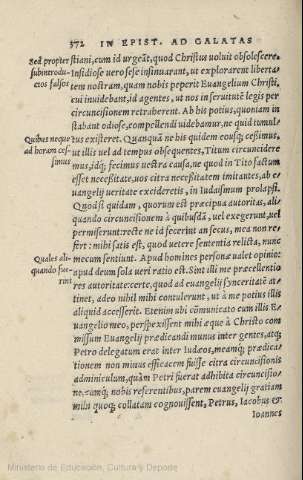 372 IN EPIST. AD GALATAS
Sed propter
subintrodu-
ctos falsos
stiani, cum id urgeãt, quod Christus uoluit obsolescere.
Insidiose uero sese insinuarant, ut explorarent liberta
tem nostram, quam nobis peperit Euangelium Christi,
cui inuidebant, id agentes, ut nos in seruitutẽ legis per
circuncisionem retraherent. Ab his potius, quoniam in
stabant odiose, compellendi uidebamur, ne quid tumul-
Quibus neque
ad horam ces-
simus
tus existeret. Quanquã ne his quidem eousq; cessimus,
ut illis uel ad tempus obsequentes, Titum circuncidere
mus, idq; fecimus uestra causa, ne quod in Tito factum
esset necessitate, uos citra necessitatem imitantes, ab e-
uangelij ueritate excideretis, in Iudaismum prolapsi.
Quod si quidam, quorum est præcipua autoritas, ali-
quando circuncisionem à quibusdã, uel exegerunt, uel
permiserunt: recte ne id fecerint an secus, mea non re-
fert: mihi satis est, quod uetere sententia relicta, nunc
Quales ali-
quando fue-
rint
mecum sentiunt. Apud homines persona ualet opinor:
apud deum sola ueri ratio est. Sint illi me præcellentio
res autoritate: certe, quod ad euangelij synceritatẽ at-
tinet, adeo nihil mihi contulerunt, ut à me potius illis
aliquid accesserit. Etenim ubi cõmunicato cum illis E-
uangelio meo, perspexissent mihi æque à Christo com
missum Euangelij prædicandi munus inter gentes, atq;
Petro delegatum erat inter Iudæos, meamq; prædica-
tionem non minus efficacem fuisse citra circuncisionis
adminiculum, quàm Petri fuerat adhibita circuncisio/
ne, eamq; nobis referentibus, parem euangelij gratiam
mihi quoq; collatam cognouissent, Petrus, Iacobus et
Ioannes
Ministerio de Educación, Cultura y Deporte